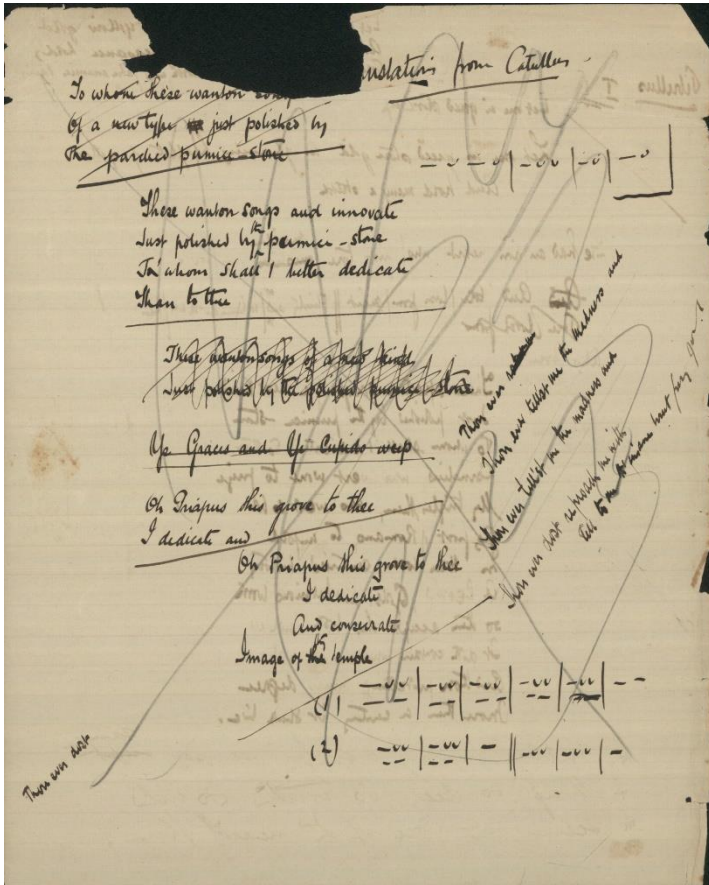 Translations from Catullus
To whom these wanton songs
Of a new type just polished by
the parched pumice-stone
— ᴗ — ᴗ | — ᴗᴗ | — ᴗ | — ᴗ
These wanton songs and innovate
Just polished by th pumice-stone
To whom shall I better dedicate
Than to thee
These wanton songs of a new kind
Just polished by the polished pumice-stone
Ye Graces and Ye Cupids weep
Oh Priapus this grove to thee
I dedicate and
Oh Priapus this grove to thee
I dedicate
And consecrate
Image of the temple
(1) — ᴗᴗ | — ᴗᴗ | — ᴗᴗ | — ᴗᴗ | — ᴗᴗ | — —
(2) — ᴗᴗ | — ᴗᴗ | — || — ᴗᴗ | — ᴗᴗ | —
Thou ever
Thou ever tellest me the madness and
Thou ever tell'st me the madness and
Thou ever dost reproach me with
Tell to
Thou ever dost
Catullus I